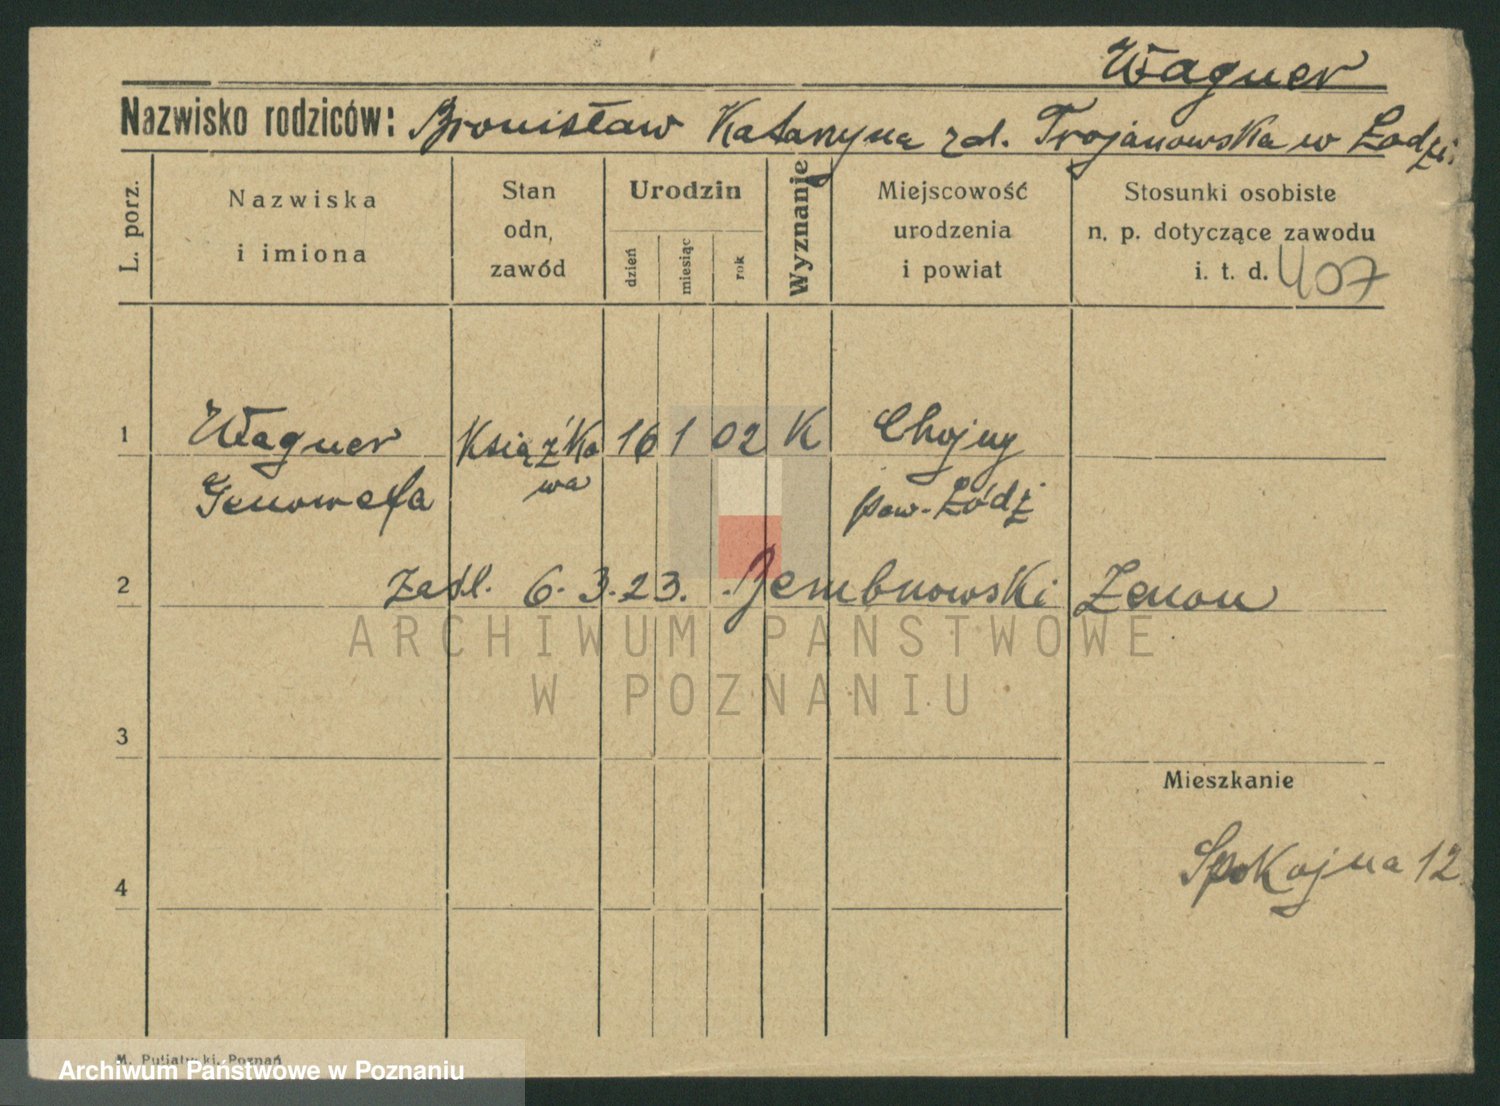 Wagner
Nazwisko rodziców: Bronisław Katarzyna zd. Trojanowska w Łodzi.
L. porz.
Nazwiska
i imiona
Stan
odn,
zawód
Urodzin
dzień
miesiąc
rok
Wyznanie
Miejscowość
urodzenia
i powiat
Stosunki osobiste
n. p. dotyczące zawodu
i. t. d. 407
1 Wagner Książko 16 1 02 K Chojny
Genowefa wa pow. Łódź
2 6. 3. 23. Zenon
ARCHIWUM PAŃSTWOWE
W POZNANIU
3
Mieszkanie
4 Spokojna 12
M. Putiatycki, Poznań
Archiwum Państwowe w Poznaniu